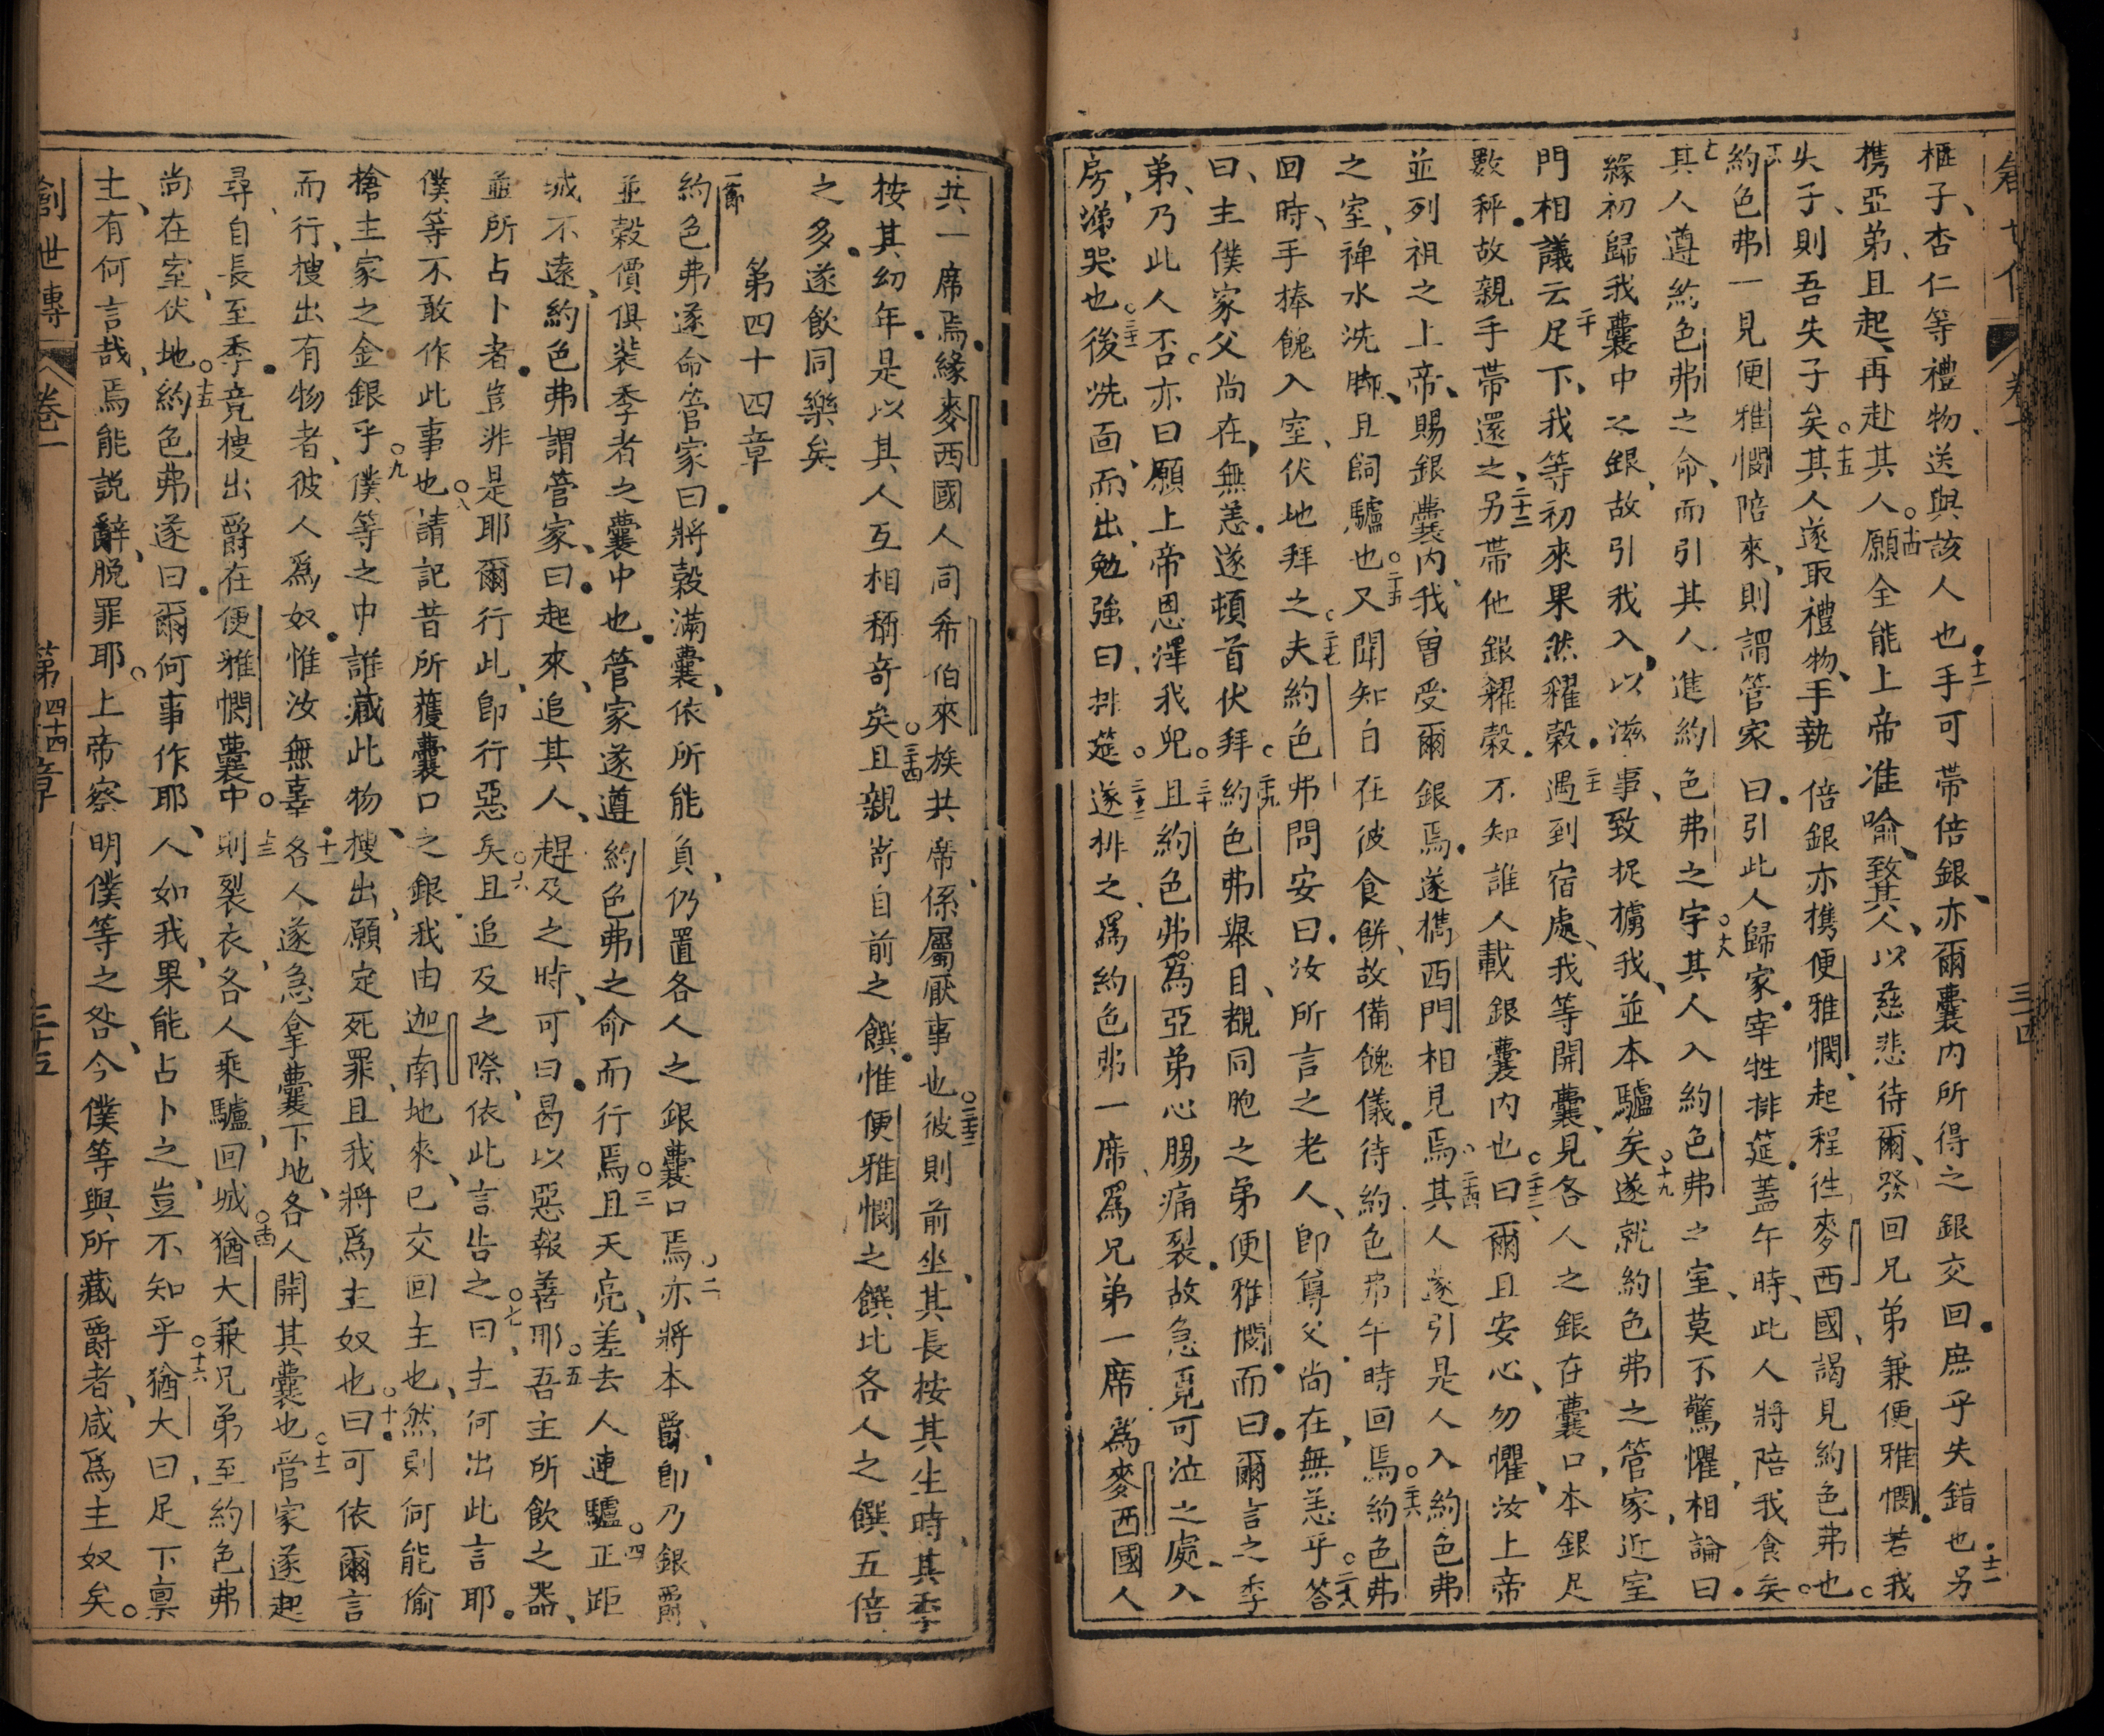 創世傳 卷一 三四
榧子、杏仁等禮物、送與該人也。十二手可帶倍銀、亦爾囊內所得之銀交回。庶乎失錯也。十三另
携亞弟、且起、再赴其人。十四願全能上帝准喻、致其人、以慈悲待爾、發回兄弟兼便雅憫。若我
失子、則吾失子矣。十五其人遂取禮物、手執倍銀亦携便雅憫、起程徃麥西國、謁見約色弗也。
約色弗一見便雅憫陪來、則謂管家曰。引此人歸家。宰牲排筵。蓋午時、此人將陪我食矣。
十七其人遵約色弗之命、而引其人進約色弗之宇。十八其人入約色弗之室、莫不驚懼、相論曰
緣初歸我囊中之銀、故引我入、以滋事、致捉擄我、並本驢矣。十九遂就約色弗之管家、近室
門相議云。二十足下、我等初來果然糴穀。二十一遇到宿處、我等開囊、見各人之銀在囊口、本銀足
數秤。故親手帶還之、二十二另帶他銀糴穀。不知誰人載銀囊內也。二十三曰、爾且安心、勿懼、汝上帝
並列祖之上帝、賜銀囊內、我曾受爾銀焉。遂携西門相見焉。二十四其人遂引是人入約色弗
之室、裨水洗脚、且飼驢也。二十五又聞知自在彼食餅、故備餽儀。待約色弗午時回焉。二十六約色弗
回時、手捧餽入室、伏地拜之。二十七夫約色弗問安曰。汝所言之老人、卽尊父尚在、無恙乎。二十八答
曰、主僕家父尚在、無恙。遂頓首伏拜。二十九約色弗舉目、覩同胞之弟便雅憫。而曰。爾言之季
弟、乃此人否。亦曰願上帝恩澤我兒。三十且約色弗爲亞弟心腸痛裂。故急覓可泣之處、入
房、涕哭也。三十一後洗面、而出、勉強曰、排筵。三十二遂排之、爲約色弗一席、爲兄弟一席爲麥西國人
共一席焉。緣麥西國人同希伯來族共席、係屬厭事也。三十三彼則前坐、其長按其生時、其季
按其幼年。是以其人互相稱奇矣。三十四且親嵜自前之饌。惟便雅憫之饌比各人之饌五倍
之多。遂飲同樂矣
第四十四章
一節約色弗遂命管家曰。將穀滿囊、依所能負、仍置各人之銀囊口焉。二亦將本爵、卽乃銀爵、
並穀價俱裝季者之囊中也。管家遂遵約色弗之命而行焉。三且天亮、差去人連驢。四正距
城不遠、約色弗謂管家、曰。起來、追其人、趕及之時、可曰。曷以惡報善耶。五吾主所飲之器、
並所占卜者。豈非是耶爾行此、卽行惡矣。六且追及之際、依此言告之。七曰、主何出此言耶。
僕等不敢作此事也。八請記昔所獲囊口之銀。我由迦南地來、已交回主也、然則何能偷
搶主家之金銀乎。九僕等之中、誰藏此物、搜出、願定死罪、且我將爲主奴也。十曰。可依爾言
而行、搜出有物者、彼人爲奴。惟汝無辜。十一各人遂急拿囊下地、各人開其囊也。十二管家遂起
尋、自長至季。竟搜出爵在便雅憫囊中。十三則裂衣、各人乘驢、回城。十四猶大兼兄弟至約色弗
尚在室、伏地。十五約色弗遂曰。爾何事作耶、人如我、果能占卜之、豈不知乎。十六猶大曰、足下禀
主、有何言哉、焉能説辭、脱罪耶。上帝察明僕等之咎、今僕等與所藏爵者、咸爲主奴矣。
創世傳 卷一 第四十四章 三十五